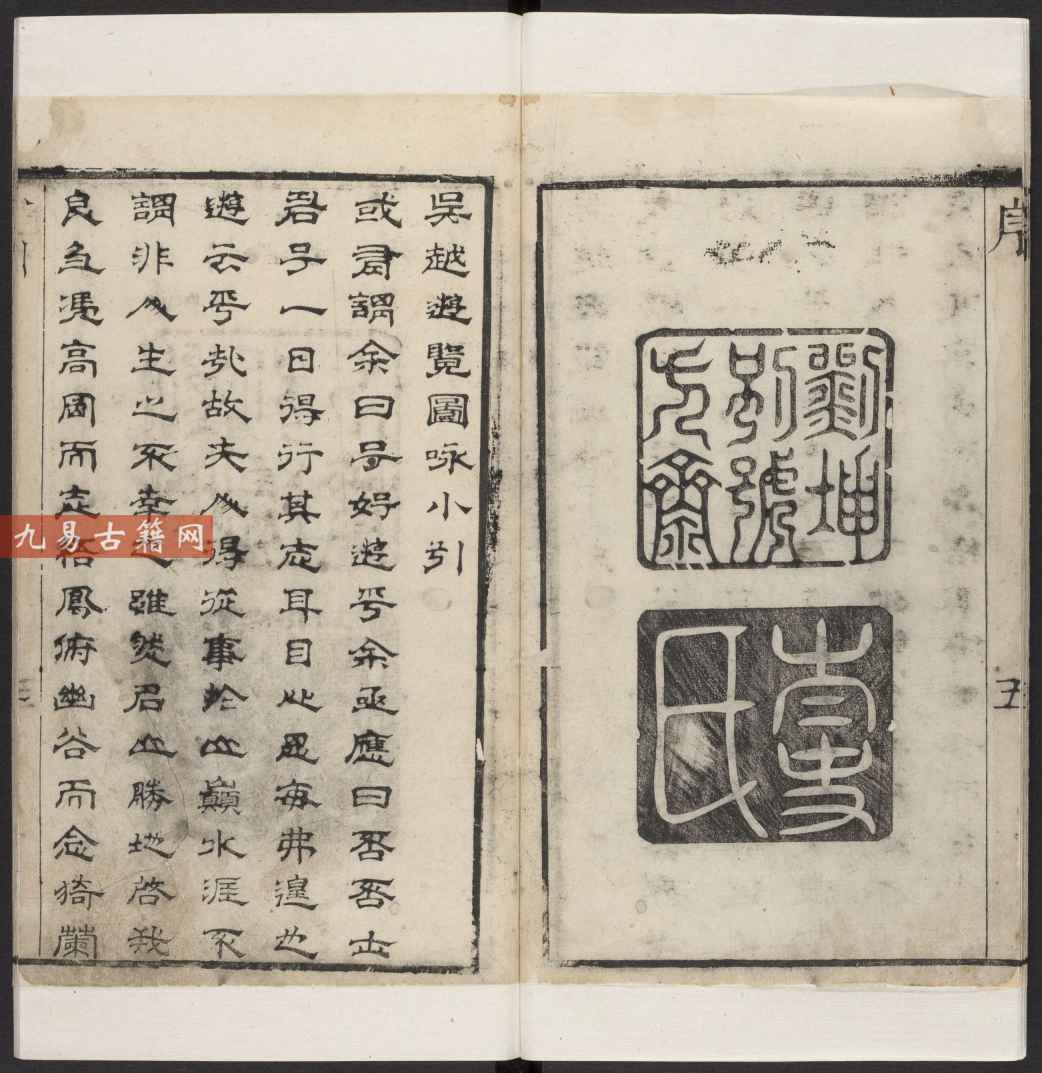 序
五
劉坤
別號
齋
氏
吳越遊覽圖咏小引
或謂余曰子好遊乎余亟應曰否否士
君子一日得行其志耳目心思每弗遑也
遊云乎哉故夫人得從事於山巔水涯不
謂非人生之不幸雖然名山勝地啓我
良多憑高岡而志梧鳳俯幽谷而念猗蘭
九易古籍网